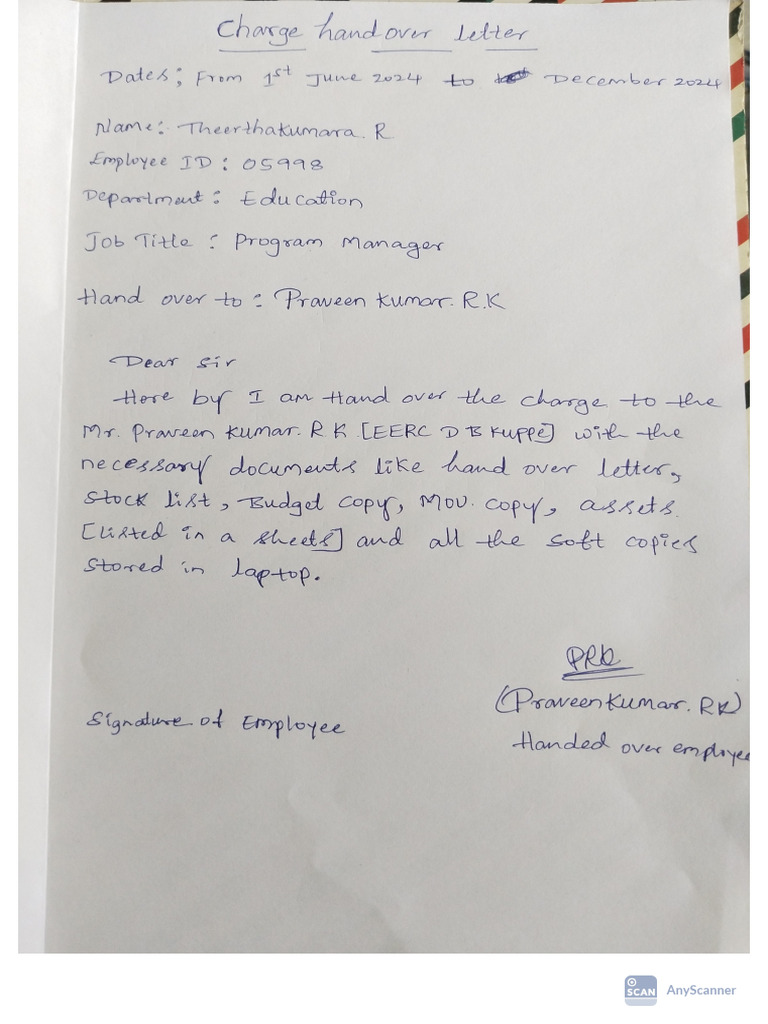 Charge hand over letter
Dates; From 1st June 2024 to December 2024
Name: Theerthakumara. R
Employee ID: 05998
Department: Education
Job Title: Program Manager
Hand over to: Praveen kumar. R.K
Dear Sir
Here by I am Hand over the charge to the
Mr. Praveen kumar. R K [EERC D B Kuppe] with the
necessary documents like hand over letter,
Stock list, Budget copy, MOU. copy, assets.
[Listed in a sheets] and all the soft copies
Stored in laptop.
PRK
(Praveenkumar. RK)
Signature of Employee
Handed over employee
SCAN AnyScanner